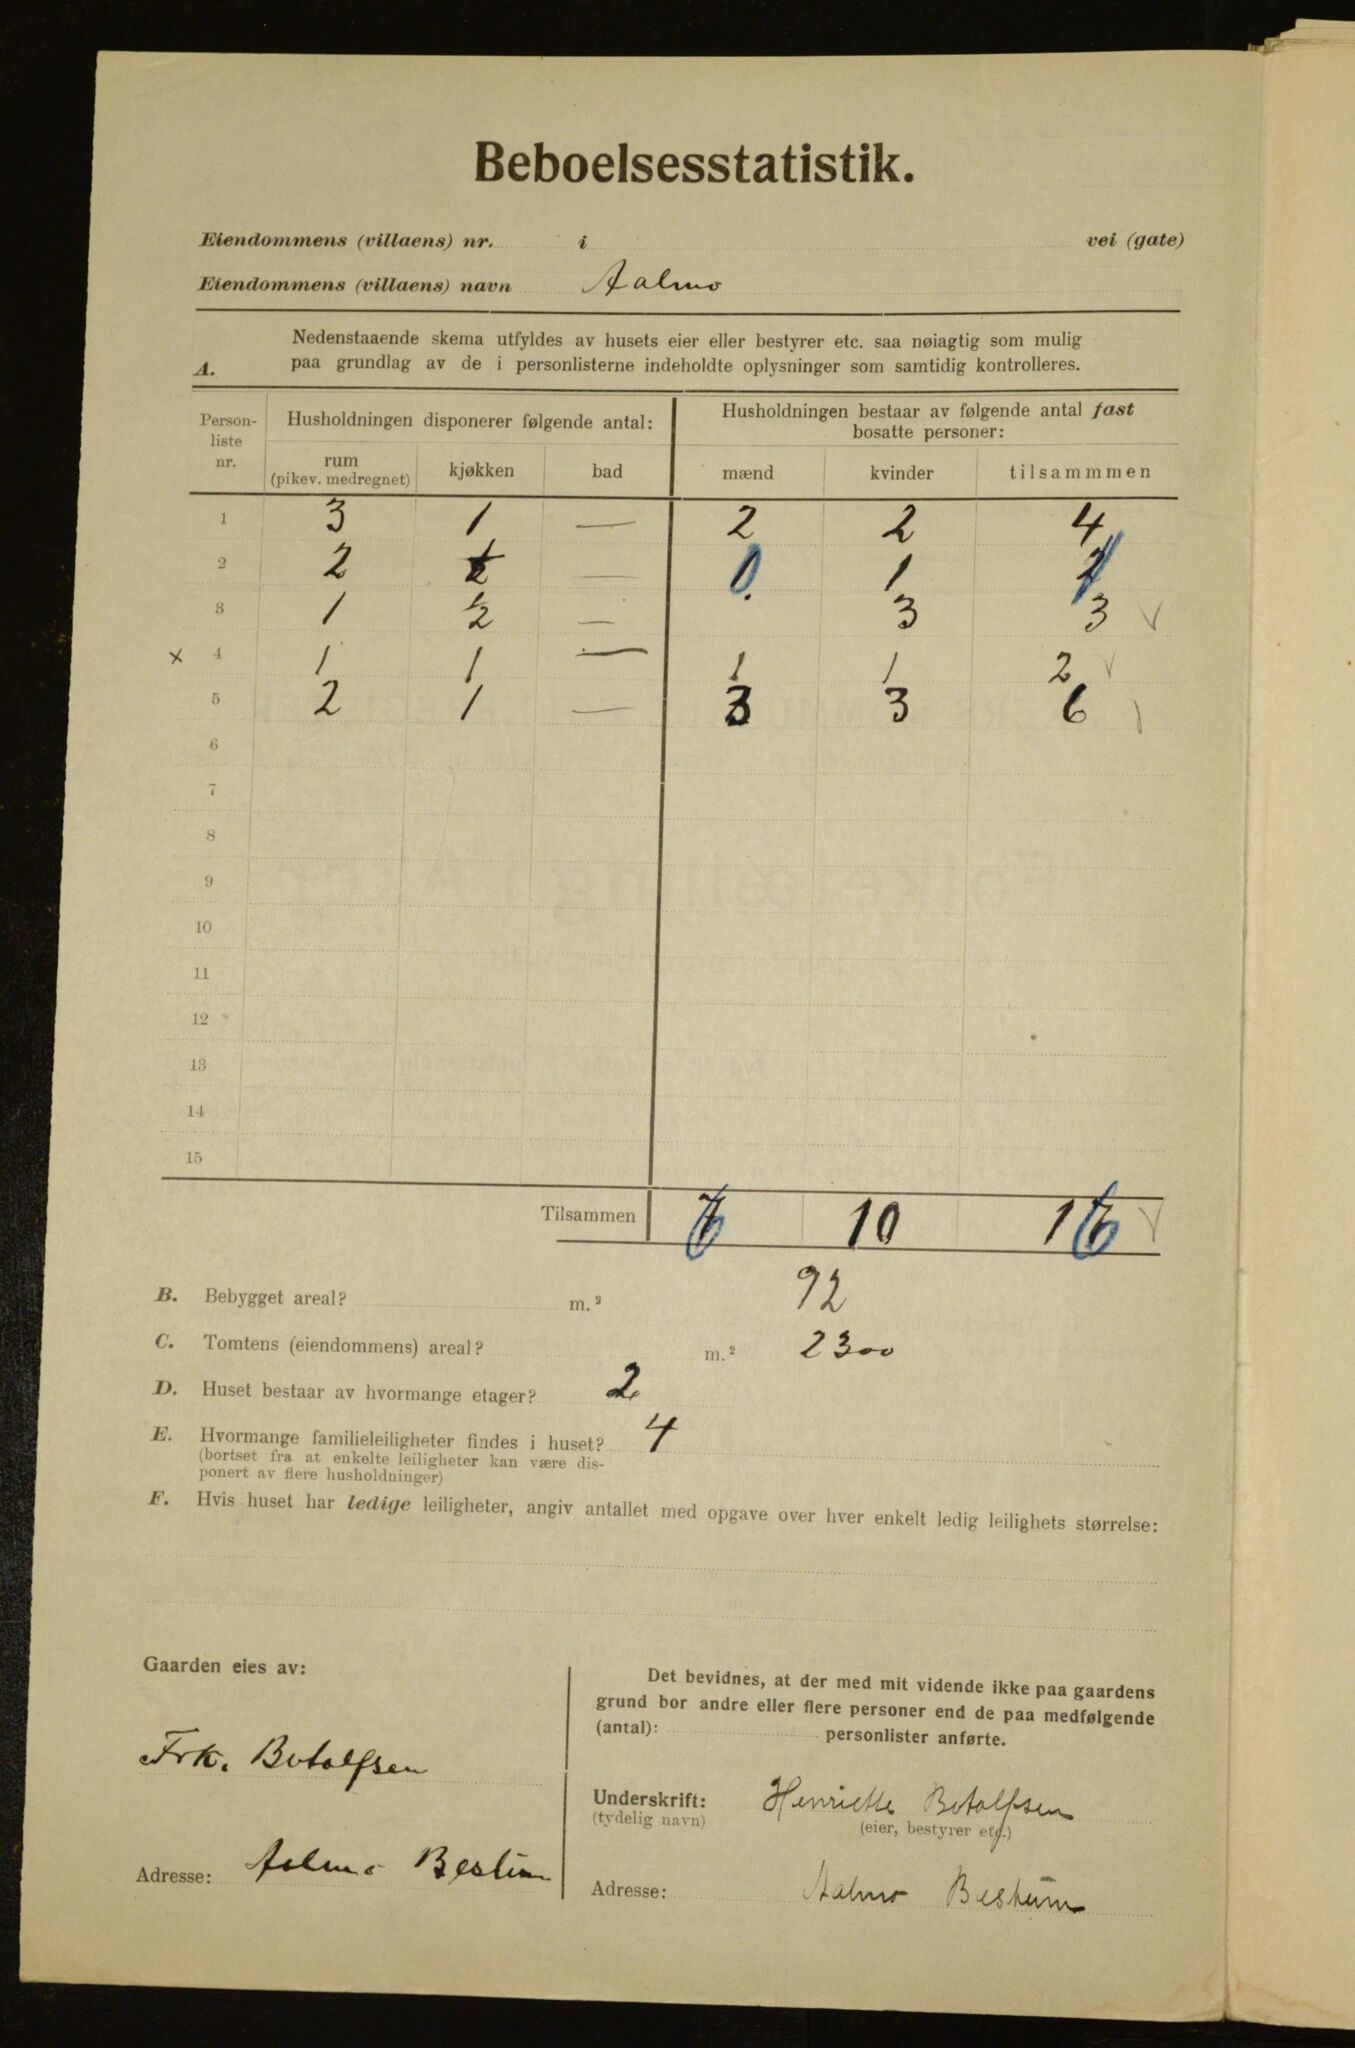 Beboelsesstatistik.
Eiendommens (villaens) nr. i vei (gate)
Eiendommens (villaens) navn Aalmo
A. Nedenstaaende skema utfyldes av husets eier eller bestyrer etc. saa nøiagtig som mulig
paa grundlag av de i personlisterne indeholdte oplysninger som samtidig kontrolleres.
Person-
liste
nr.
Husholdningen disponerer følgende antal:
Husholdningen bestaar av følgende antal fast
bosatte personer:
rum
(pikev. medregnet)
kjøkken bad mænd kvinder tilsammmen
1 3 1 — 2 2 4
2 2 ½ — 0 1 1
3 1 ½ — 3 3 √
x 4 1 1 — 1 1 2 √
5 2 1 — 3 3 6 √
6
7
8
9
10
11
12
13
14
15
Tilsammen 6 10 16 √
B. Bebygget areal? m.² 92
C. Tomtens (eiendommens) areal? m.² 2300
D. Huset bestaar av hvormange etager? 2
E. Hvormange familieleiligheter findes i huset? 4
(bortset fra at enkelte leiligheter kan være dis-
ponert av flere husholdninger)
F. Hvis huset har ledige leiligheter, angiv antallet med opgave over hver enkelt ledig leilighets størrelse:
Gaarden eies av:
Frk. Botolfsen
Adresse: Aalmo Bestum
Det bevidnes, at der med mit vidende ikke paa gaardens
grund bor andre eller flere personer end de paa medfølgende
(antal): personlister anførte.
Underskrift: Henriette Botolfsen
(tydelig navn) (eier, bestyrer etc.)
Adresse: Aalmo Bestum